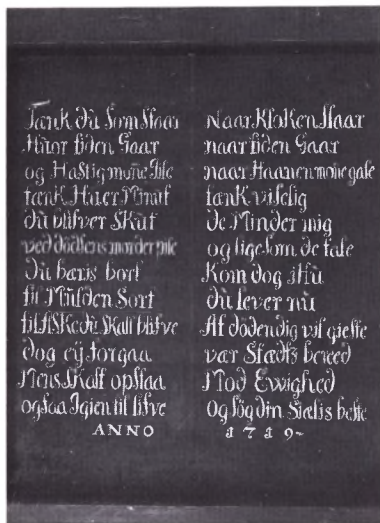 Tænk du Som Staar
Huor tiden Gaar
og Hastig mone Iile
tænk Huer Minut
du blifver Skut
ved dødsens morder pile
du baris bort
til Mulden Sort
til Aske du Skall blifve
dog eÿ forgaa
Mens Skalt opstaa
ogsaa Igien til lifve
ANNO
Naar Klaken Slaar
naar tiden Gaar
naar Haanen mone gale
tænk viselig
de Minder mig
og ligesom de tale
Kom dog ihu
du lever nu
Af døden dig vil gieste
vær Stædtz bereed
Mod Ewighed
Og søg din Siælis beste
1719